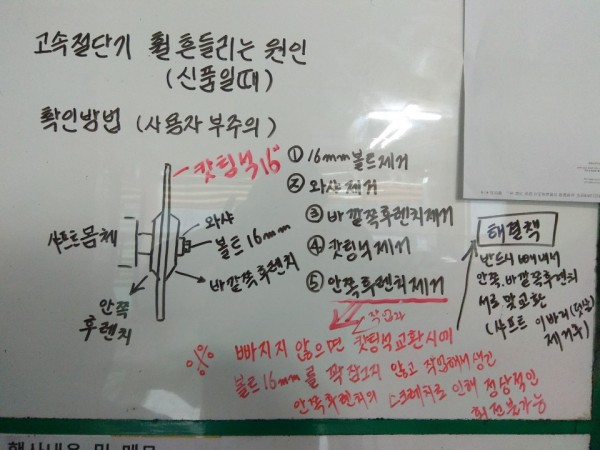 고속절단기 휠 흔들리는 원인
(신품일때)
확인방법 (사용자 부주의)
캇팅석16"
① 16mm볼트제거
② 와샤제거
③ 바깥쪽후렌치제거
④ 캇팅석제거
⑤ 안쪽후렌치제거
샤프트몸체
와샤
볼트16mm
바깥쪽후렌치
안쪽
후렌치
해결책
반드시 빼내어
안쪽.바깥쪽후렌치
서로 맞교환
(샤프트 이바리(덧살)
제거후)
작업자
빠지지 않으면 캇팅석교환시에
볼트16mm를 꽉잠그지 않고 작업해서생긴
안쪽후렌치의 스크레치로 인해 정상적인
회전불가능